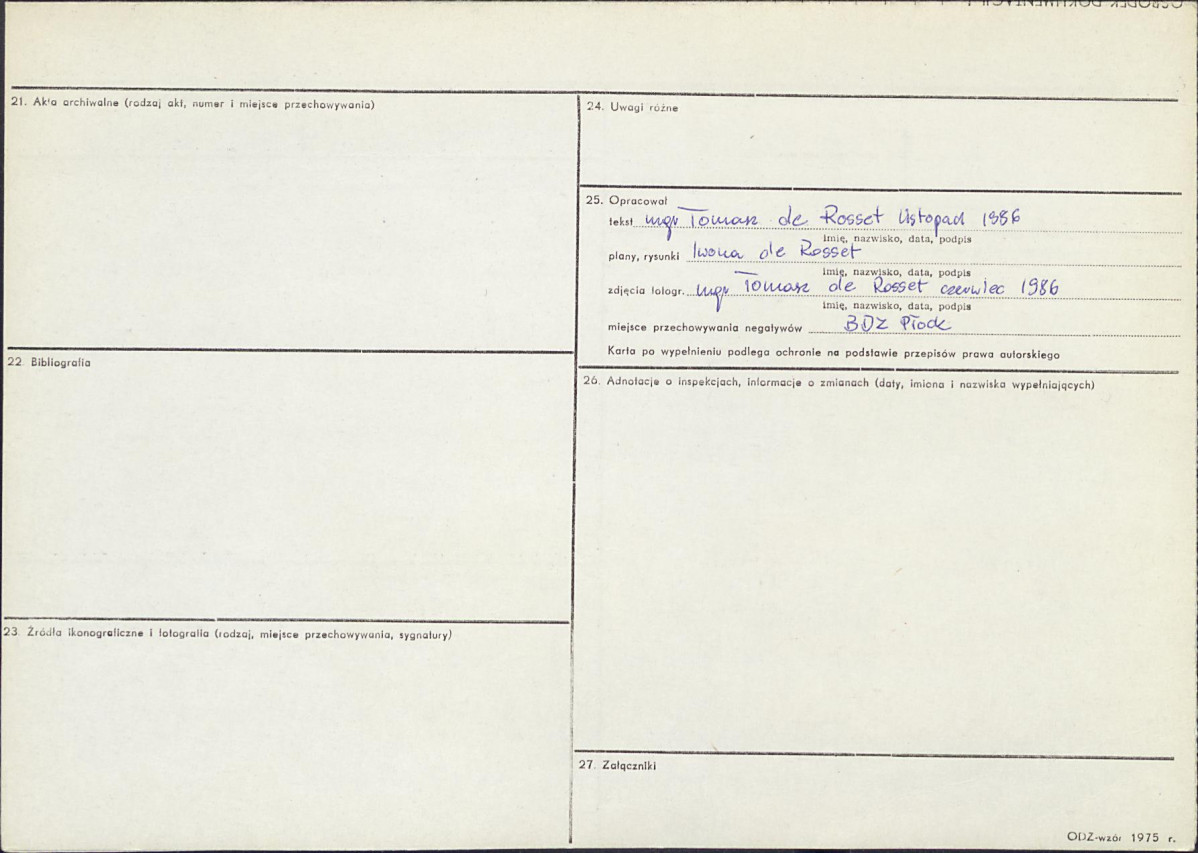 21. Akta archiwalne (rodzaj akt, numer i miejsce przechowywania)
22. Bibliografia
23. Źródła ikonograficzne i fotografia (rodzaj, miejsce przechowywania, sygnatury)
24. Uwagi różne
25. Opracował
tekst mgr Tomasz de Rosset listopad 1986
imię, nazwisko, data, podpis
plany, rysunki Iwona de Rosset
imię, nazwisko, data, podpis
zdjęcia fotogr. mgr Tomasz de Rosset czerwiec 1986
imię, nazwisko, data, podpis
miejsce przechowywania negatywów BDZ Płock
Karta po wypełnieniu podlega ochronie na podstawie przepisów prawa autorskiego
26. Adnotacje o inspekcjach, informacje o zmianach (daty, imiona i nazwiska wypełniających)
27. Załączniki
ODZ-wzór 1975 r.